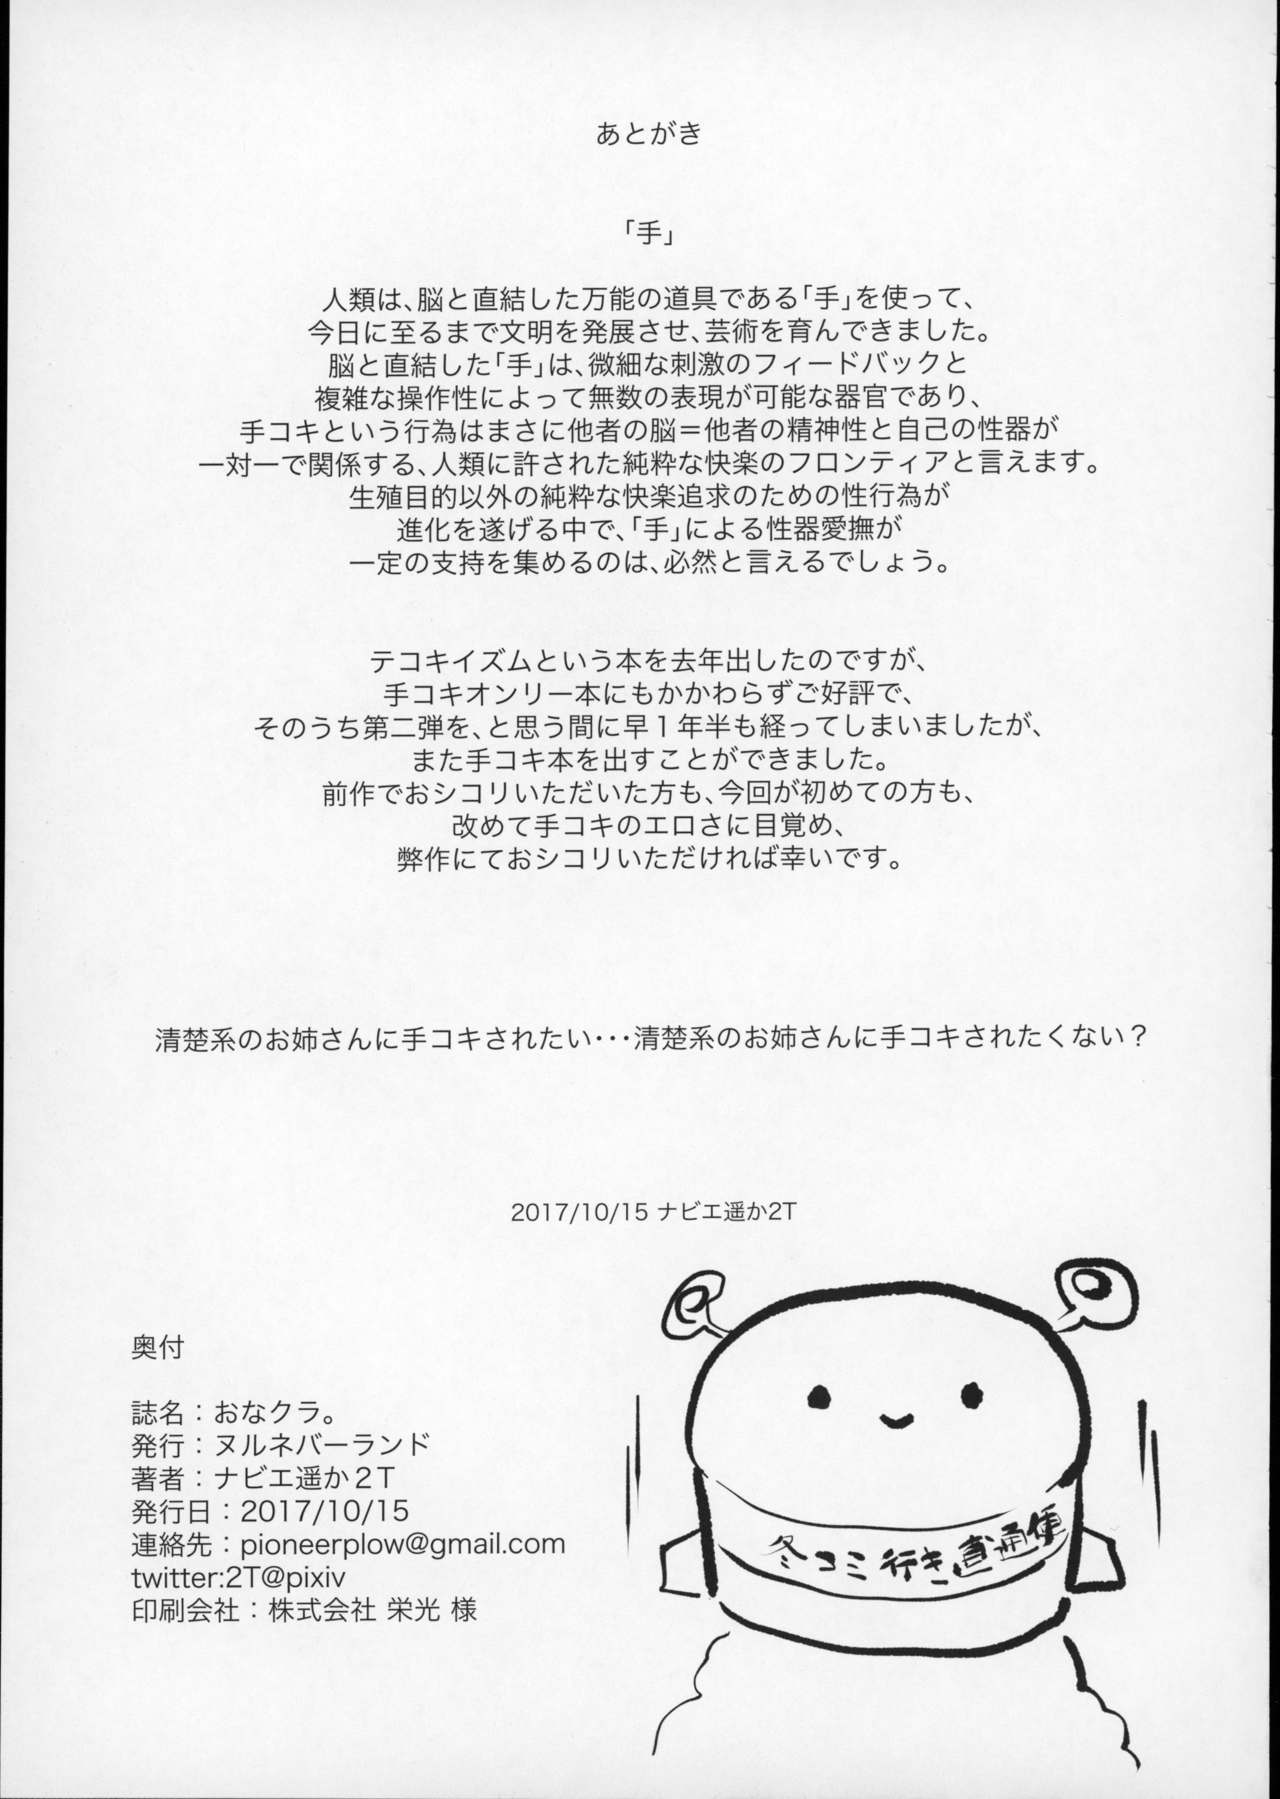 あとがき
「手」
人類は、脳と直結した万能の道具である「手」を使って、
今日に至るまで文明を発展させ、芸術を育んできました。
脳と直結した「手」は、微細な刺激のフィードバックと
複雑な操作性によって無数の表現が可能な器官であり、
手コキという行為はまさに他者の脳＝他者の精神性と自己の性器が
一対一で関係する、人類に許された純粋な快楽のフロンティアと言えます。
生殖目的以外の純粋な快楽追求のための性行為が
進化を遂げる中で、「手」による性器愛撫が
一定の支持を集めるのは、必然と言えるでしょう。
テコキイズムという本を去年出したのですが、
手コキオンリー本にもかかわらずご好評で、
そのうち第二弾を、と思う間に早１年半も経ってしまいましたが、
また手コキ本を出すことができました。
前作でおシコリいただいた方も、今回が初めての方も、
改めて手コキのエロさに目覚め、
弊作にておシコリいただければ幸いです。
清楚系のお姉さんに手コキされたい・・・清楚系のお姉さんに手コキされたくない？
2017/10/15 ナビエ遥か2T
奥付
誌名：おなクラ。
発行：ヌルネバーランド
著者：ナビエ遥か２T
発行日：2017/10/15
連絡先：pioneerplow@gmail.com
twitter:2T@pixiv
印刷会社：株式会社 栄光 様
冬コミ行き直通便